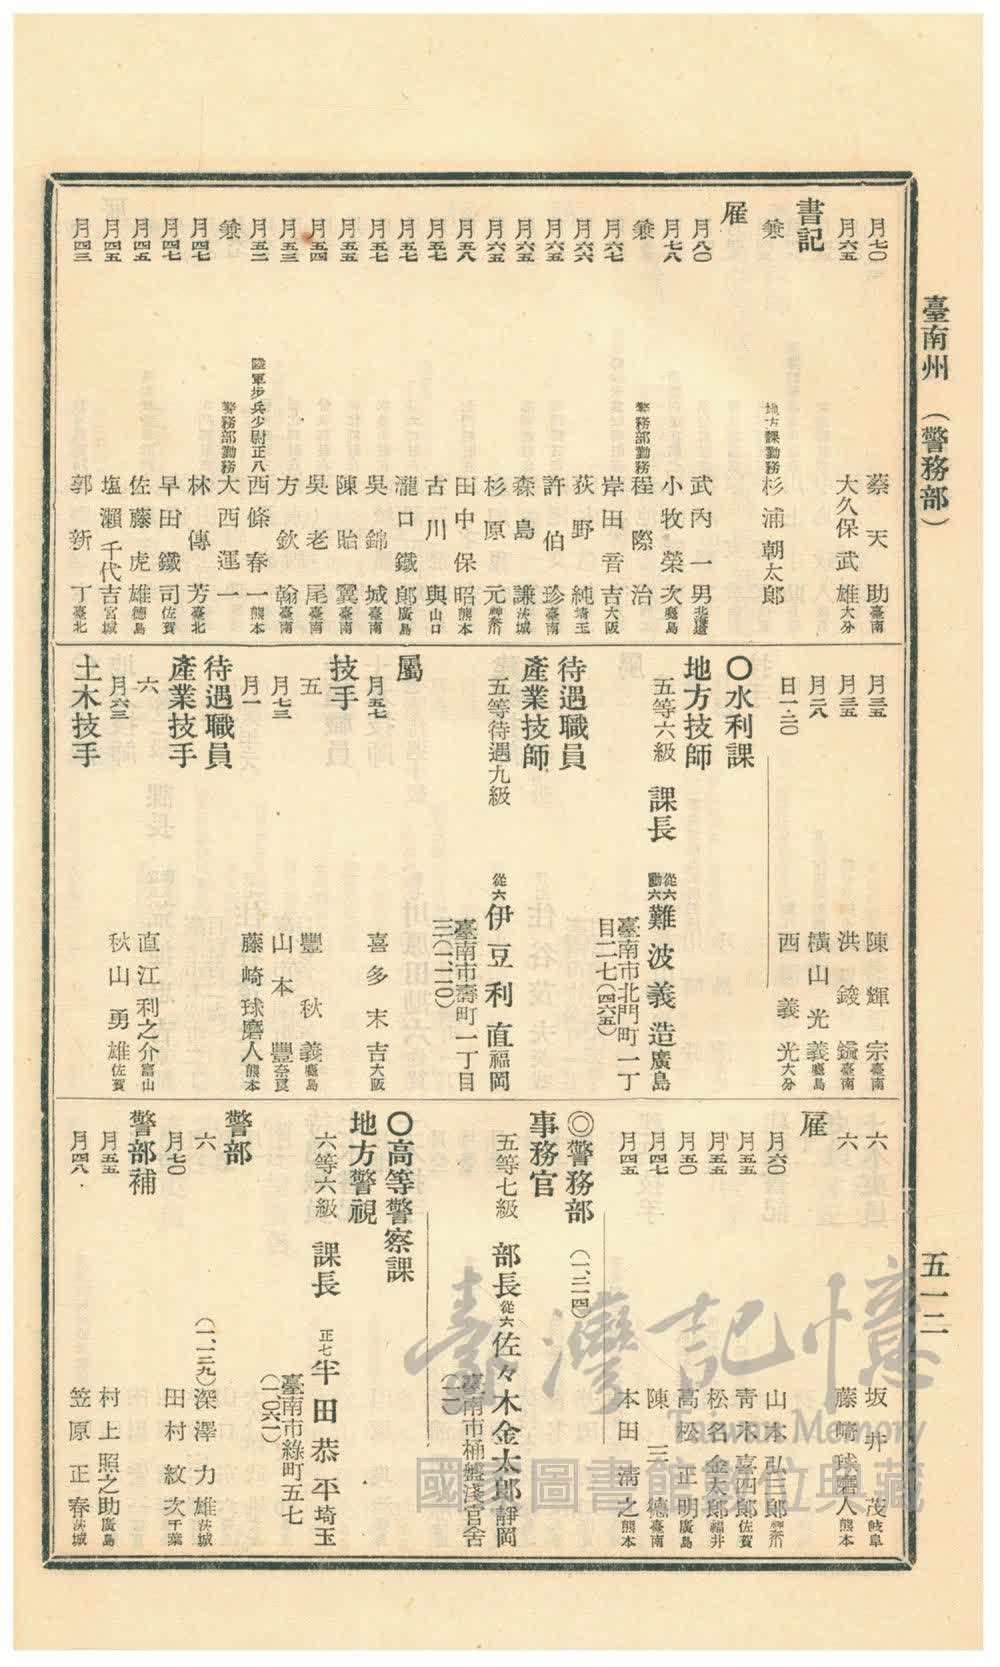 臺南州（警務部）
五一二
月七〇 蔡天助 臺南
月六五 大久保武雄 大分
書記
兼 地方課勤務 杉浦朝太郎
雇
月八〇 武內一男 北海道
月七八 小牧榮次 鹿兒島
兼 警務部勤務 程際治
月六七 岸田晋吉 大阪
月六六 荻野純 埼玉
月六五 許伯珍 臺南
月六五 森島謙 茨城
月六五 杉原元 神奈川
月五八 田中保昭 熊本
月五七 古川與 山口
月五七 瀧口鐵郎 廣島
月五七 吳錦城 臺南
月五五 陳貽翼 臺南
月五四 吳老尾 臺南
月五三 方欽翰 臺南
月五二 陸軍步兵少尉正八 西條春一 熊本
兼 警務部勤務 大西運一
月四七 林傳芳 臺北
月四七 早田鐵司 佐賀
月四五 佐藤虎雄 德島
月四五 塩瀨千代吉 宮城
月四三 郭新丁 臺北
月三五 陳輝宗 臺南
月三五 洪鏡鐘 臺南
月二八 橫山光義 鹿兒島
日一・二〇 西義光 大分
〇水利課
地方技師
五等六級 課長 從六勳六 難波義造 廣島
臺南市北門町一丁
目二七（四六五）
待遇職員
產業技師
五等待遇九級 從六 伊豆利直 福岡
臺南市壽町一丁目
三（一二〇）
屬
月五七 喜多末吉 大阪
技手
五 豐秋義 鹿兒島
月七三 山本豐 奈良
月一 藤崎球磨人 熊本
待遇職員
產業技手
六 直江利之介 富山
月六三 秋山勇雄 佐賀
土木技手
六 坂井茂 岐阜
六 藤崎球磨人 熊本
雇
月六〇 山本弘三郎 神奈川
月五五 靑木嘉四郎 佐賀
月五五 松名金太郎 福井
月五〇 高松正明 廣島
月四七 陳三德 臺南
月四五 本田淸之 熊本
◎警務部（一、二一四）
事務官
五等七級 部長 從六 佐々木金太郎 靜岡
臺南市桶盤淺官舍
高等警察課
地方警視
六等六級 課長 正七 半田恭平 埼玉
臺南市綠町五七
（一、〇六一）
警部
六（一、一二九）深澤力雄 茨城
月七〇 田村紋次 千葉
警部補
月五五 村上照之助 廣島
月四八 笠原正春 茨城
臺灣記憶
Taiwan Memory
國家圖書館數位典藏